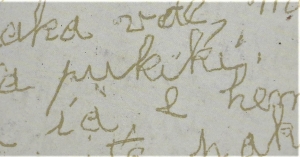 aka vae, m
a pukiki.
ia, e hem
te hak